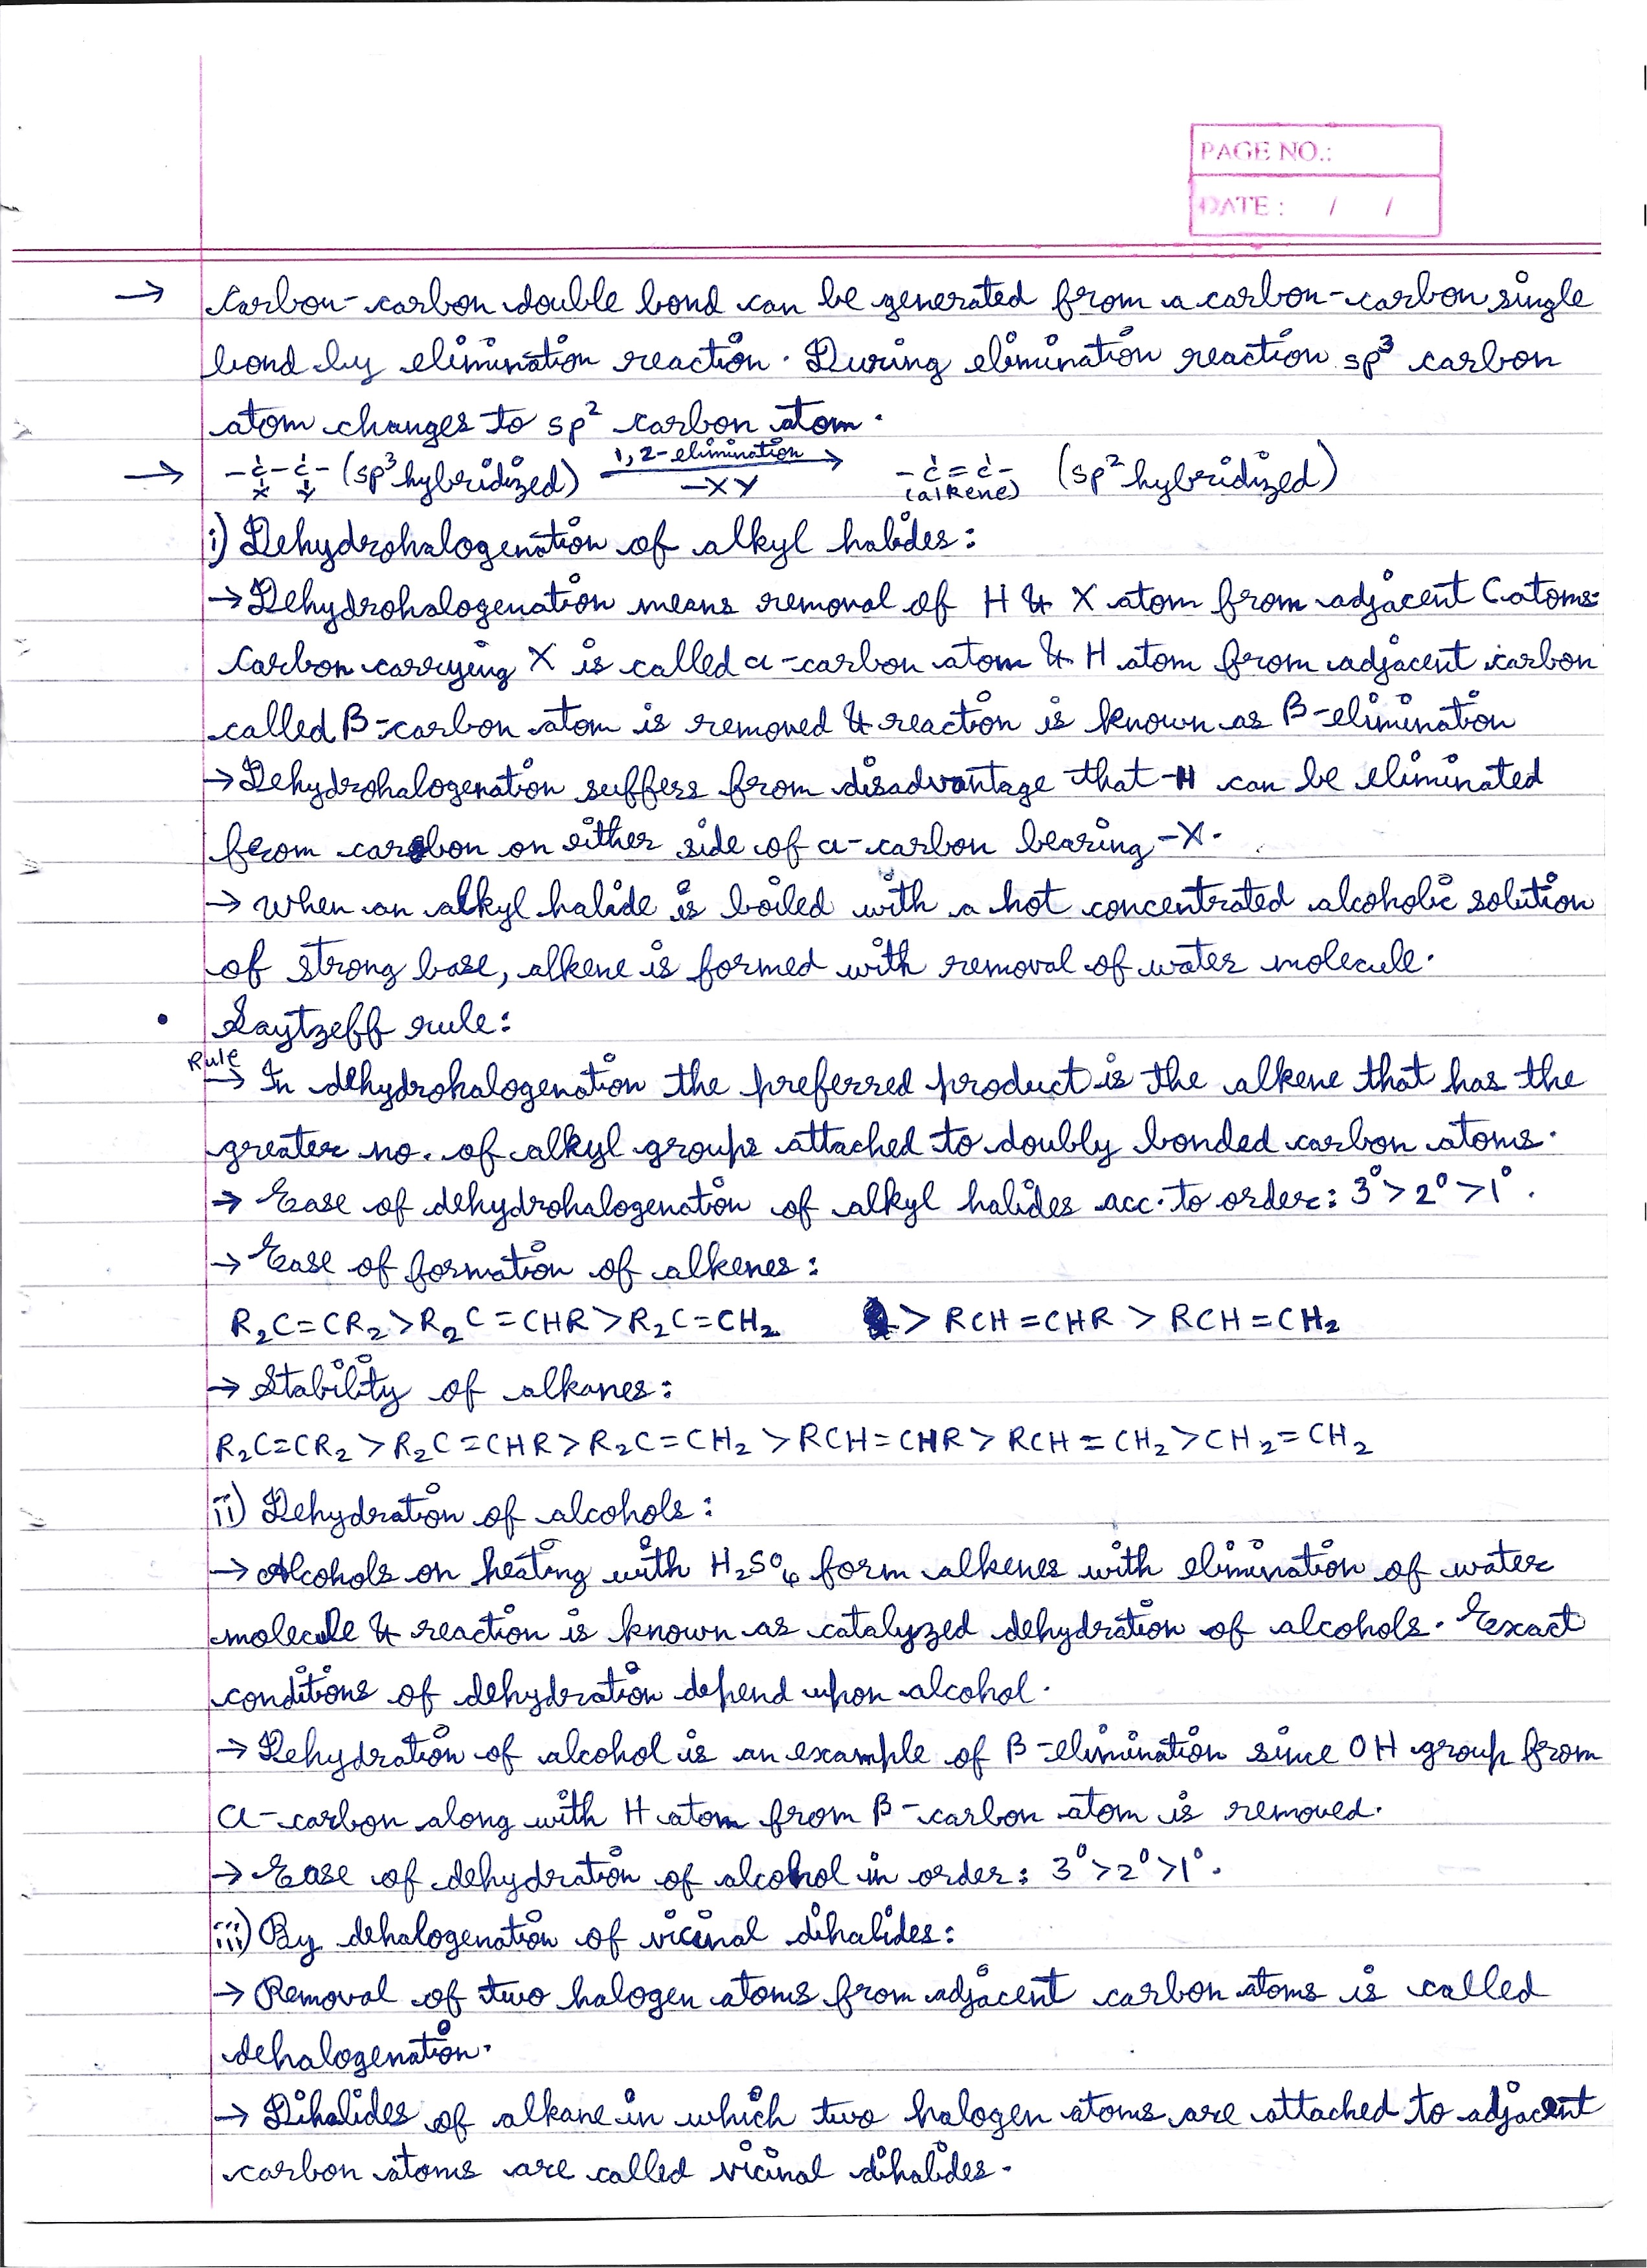 PAGE NO.:
DATE : / /
→ Carbon-carbon double bond can be generated from a carbon-carbon single
bond by elimination reaction. During elimination reaction sp³ carbon
atom changes to sp² carbon atom.
→ -C-C- (sp³ hybridized) 1,2-elimination → -C=C- (sp² hybridized)
X Y -XY (alkene)
i) Dehydrohalogenation of alkyl halides:
→ Dehydrohalogenation means removal of H & X atom from adjacent C atoms.
Carbon carrying X is called α-carbon atom & H atom from adjacent carbon
called β-carbon atom is removed & reaction is known as β-elimination
→ Dehydrohalogenation suffers from disadvantage that H can be eliminated
from carbon on either side of α-carbon bearing -X.
→ When an alkyl halide is boiled with a hot concentrated alcoholic solution
of strong base, alkene is formed with removal of water molecule.
• Saytzeff rule:
Rule
→ In dehydrohalogenation the preferred product is the alkene that has the
greater no. of alkyl groups attached to doubly bonded carbon atoms.
→ Ease of dehydrohalogenation of alkyl halides acc. to order: 3°>2°>1°.
→ Ease of formation of alkenes:
R₂C=CR₂>R₂C=CHR>R₂C=CH₂ > RCH=CHR > RCH=CH₂
→ Stability of alkanes:
R₂C=CR₂ > R₂C=CHR > R₂C=CH₂ > RCH=CHR > RCH=CH₂ > CH₂=CH₂
ii) Dehydration of alcohols:
→ Alcohols on heating with H₂SO₄ form alkenes with elimination of water
molecule & reaction is known as catalyzed dehydration of alcohols. Exact
conditions of dehydration depend upon alcohol.
→ Dehydration of alcohol is an example of β-elimination since OH group from
α-carbon along with H atom from β-carbon atom is removed.
→ Ease of dehydration of alcohol in order: 3°>2°>1°.
iii) By dehalogenation of vicinal dihalides:
→ Removal of two halogen atoms from adjacent carbon atoms is called
dehalogenation.
→ Dihalides of alkane in which two halogen atoms are attached to adjacent
carbon atoms are called vicinal dihalides.